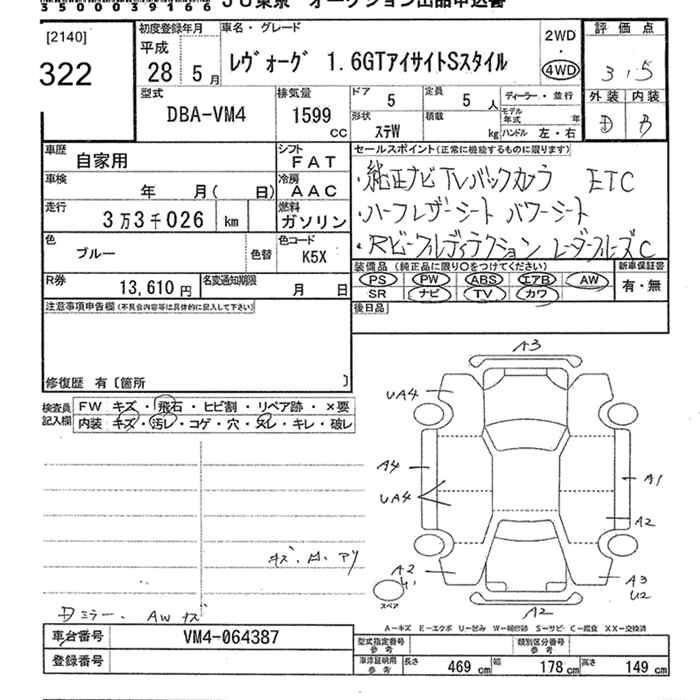 35000039166 JU東京 オークション出品申込書
[2140]
322
初度登録年月
平成
28 5月
車名・グレード
レヴォーグ 1.6GTアイサイトSスタイル
2WD
・
4WD
評価点
3.5
外装 内装
D B
型式
DBA-VM4
排気量
1599
CC
ドア 5
定員 5人
ディーラー・並行
形状 ステW
積載 kg
モデル年式 年
ハンドル 左・右
車歴
自家用
シフト
FAT
車検
年 月( 日)
冷房
AAC
走行
3万3千026 km
燃料
ガソリン
色
ブルー
色替
色コード
K5X
R券
13,610円
名変通知期限
月 日
セールスポイント(正常に機能するものに限ります)
・純正ナビTVバックカメラ ETC
・ハーフレザーシート パワーシート
・Rビークルディテクション レーダークルーズC
装備品(純正品に限り〇をつけてください)
PS PW ABS エアB AW
SR ナビ TV カワ
新車保証書
有・無
後日品
注意事項申告欄(不具合内容等は具体的に記入して下さい)
修復歴 有〔箇所 〕
検査員記入欄
FW キズ・飛石・ヒビ割・リペア跡・×要
内装 キズ・汚レ・コゲ・穴・スレ・キレ・破レ
A3
UA4
A4
UA4
A1
A2
A2
A3
U2
A2
スペア
Dミラー、AWキズ
A-キズ E-エクボ U-凹み W-補修跡 S-サビ C-腐食 XX-交換済
車台番号 VM4-064387
登録番号
型式指定番号 参考
類別区分番号 参考
車庫証明用参考 長さ 469cm 幅 178cm 高さ 149cm